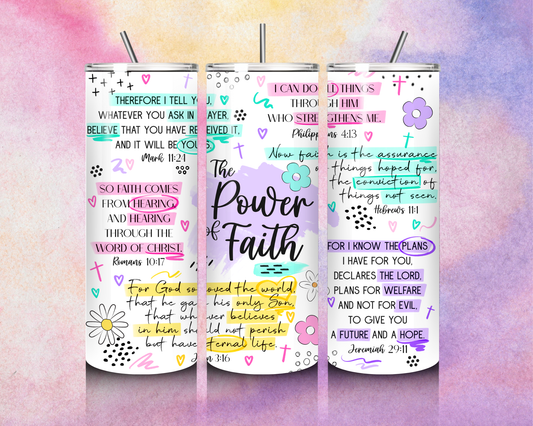 THEREFORE I TELL YOU,
WHATEVER YOU ASK IN PRAYER,
BELIEVE THAT YOU HAVE RECEIVED IT,
AND IT WILL BE YOURS
Mark 11:24
SO FAITH COMES
FROM HEARING,
AND HEARING
THROUGH THE
WORD OF CHRIST.
Romans 10:17
The
Power
of
Faith
For God so loved the world,
that he gave his only Son,
that whoever believes
in him should not perish
but have eternal life.
John 3:16
I CAN DO ALL THINGS
THROUGH HIM
WHO STRENGTHENS ME.
Philippians 4:13
Now faith is the assurance
of things hoped for,
the conviction of
things not seen.
Hebrews 11:1
FOR I KNOW THE PLANS
I HAVE FOR YOU,
DECLARES THE LORD,
PLANS FOR WELFARE
AND NOT FOR EVIL,
TO GIVE YOU
A FUTURE AND A HOPE.
Jeremiah 29:11